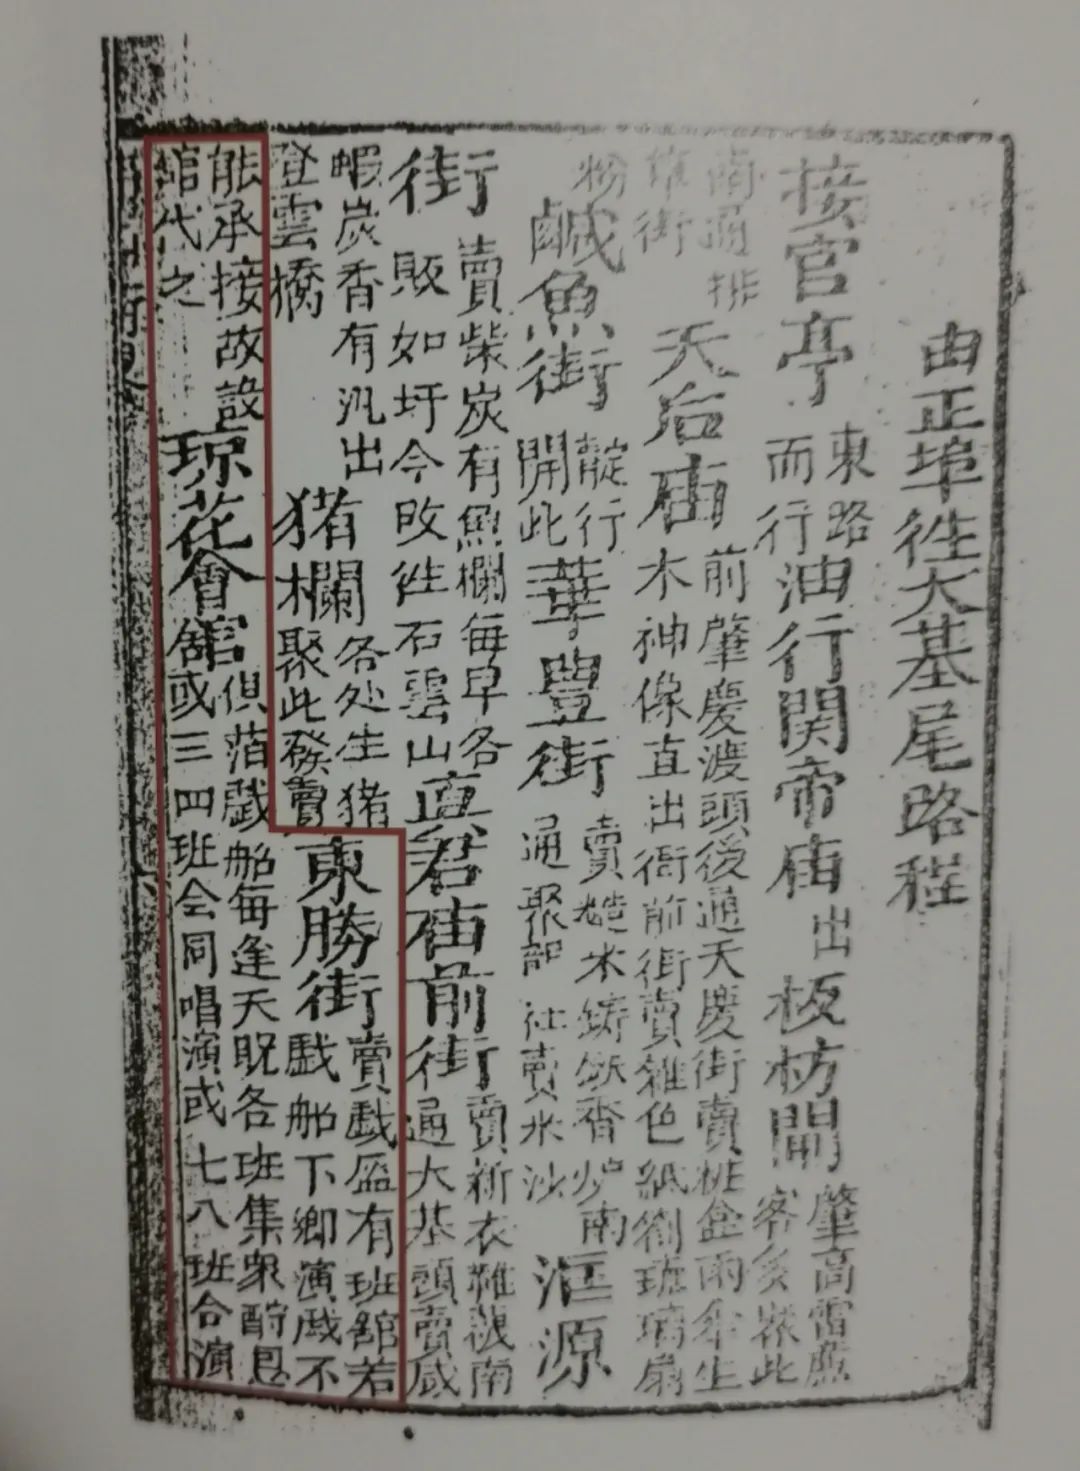 由正埠徃大基尾路程
接官亭
東路
而行
油行関帝庙
出
板枋閘
肇高雷廉
客多聚此
南通排
街
天后庙
前肇慶渡頭後通天慶街賣桃盒雨伞生
木神像直出衙前街賣雜色紙劄琉璃扇
粉
鹹魚街
靛行
開此
華豊街
賣糙米鋳香炉南
通聚社賣米沙
滙源
街
賣柴炭有魚欄每早各
販如圩今改徃石雲山
真君庙前街
賣新衣鞋襪南
通大基頭賣咸
蝦炭香有氿出
登雲橋
猪欄
各处生猪
聚此發賣
東勝街
賣戯盔有班舘若
戯船下鄉演戯不
能承接故設
舘代之
琼花會舘
俱泊戯船每逢天貺各班集衆酧恩
或三四班会同唱演或七八班合演